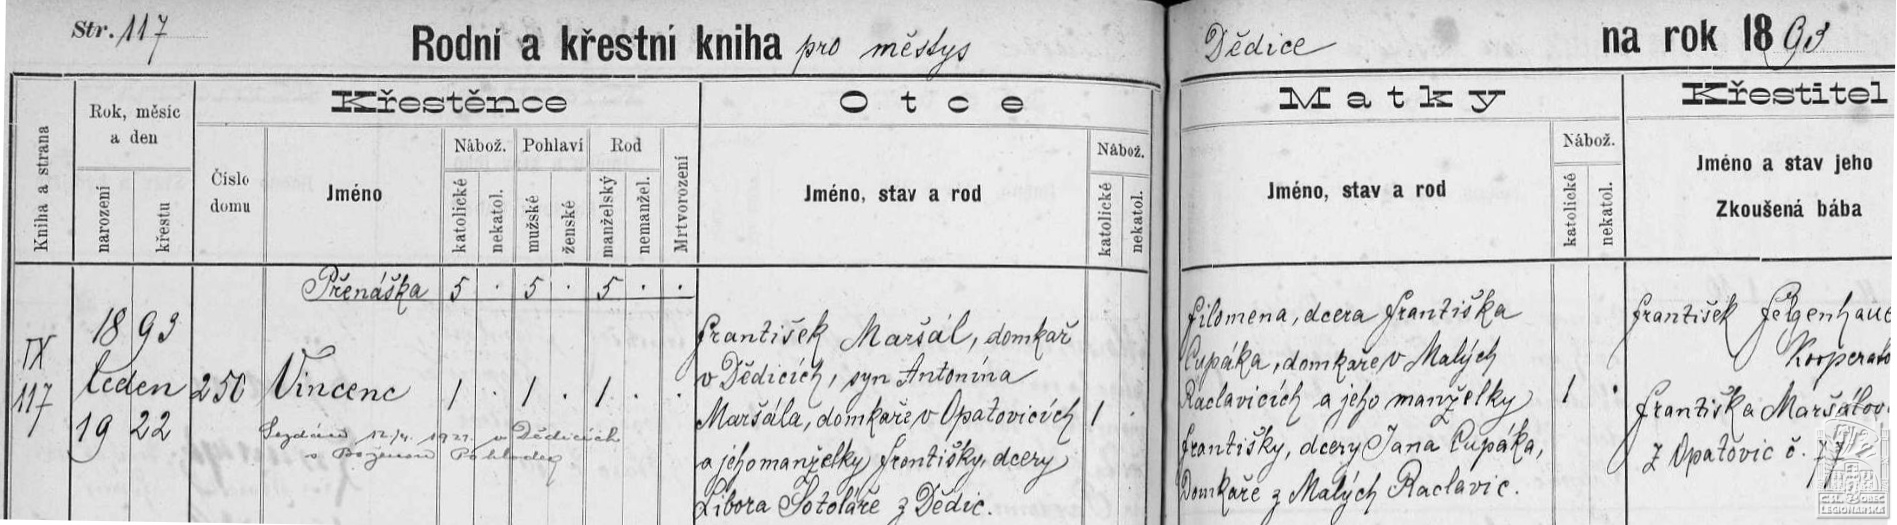 Str. 117
Rodní a křestní kniha pro městys Dědice na rok 1893
Kniha a strana
Rok, měsíc a den
narození
křestu
Křestěnce
Číslo domu
Jméno
Nábož.
katolické
nekatol.
Pohlaví
mužské
ženské
Rod
manželský
nemanžel.
Mrtvorození
Otce
Jméno, stav a rod
Nábož.
katolické
nekatol.
Matky
Jméno, stav a rod
Nábož.
katolické
nekatol.
Křestitel
Jméno a stav jeho
Zkoušená bába
Přenáška 5 . 5 . 5 . .
IX
117
1893
leden
19 22
250
Vincenc
1 . 1 . 1 . .
1921 v Dědicích
s Boženou
František Maršál, domkař
v Dědicích, syn Antonína
Maršála, domkaře v Opatovicích
a jeho manželky Františky, dcery
Libora Šotoláře z Dědic.
1 .
Filomena, dcera Františka
Cupáka, domkaře v Malých
Raclavicích a jeho manželky
Františky, dcery Jana Cupáka,
Domkaře z Malých Raclavic.
1 .
František Felgenhaue
Kooperato
Františka Maršálov
z Opatovic č. 77
ČS. OBEC
LEGIONÁŘSKÁ